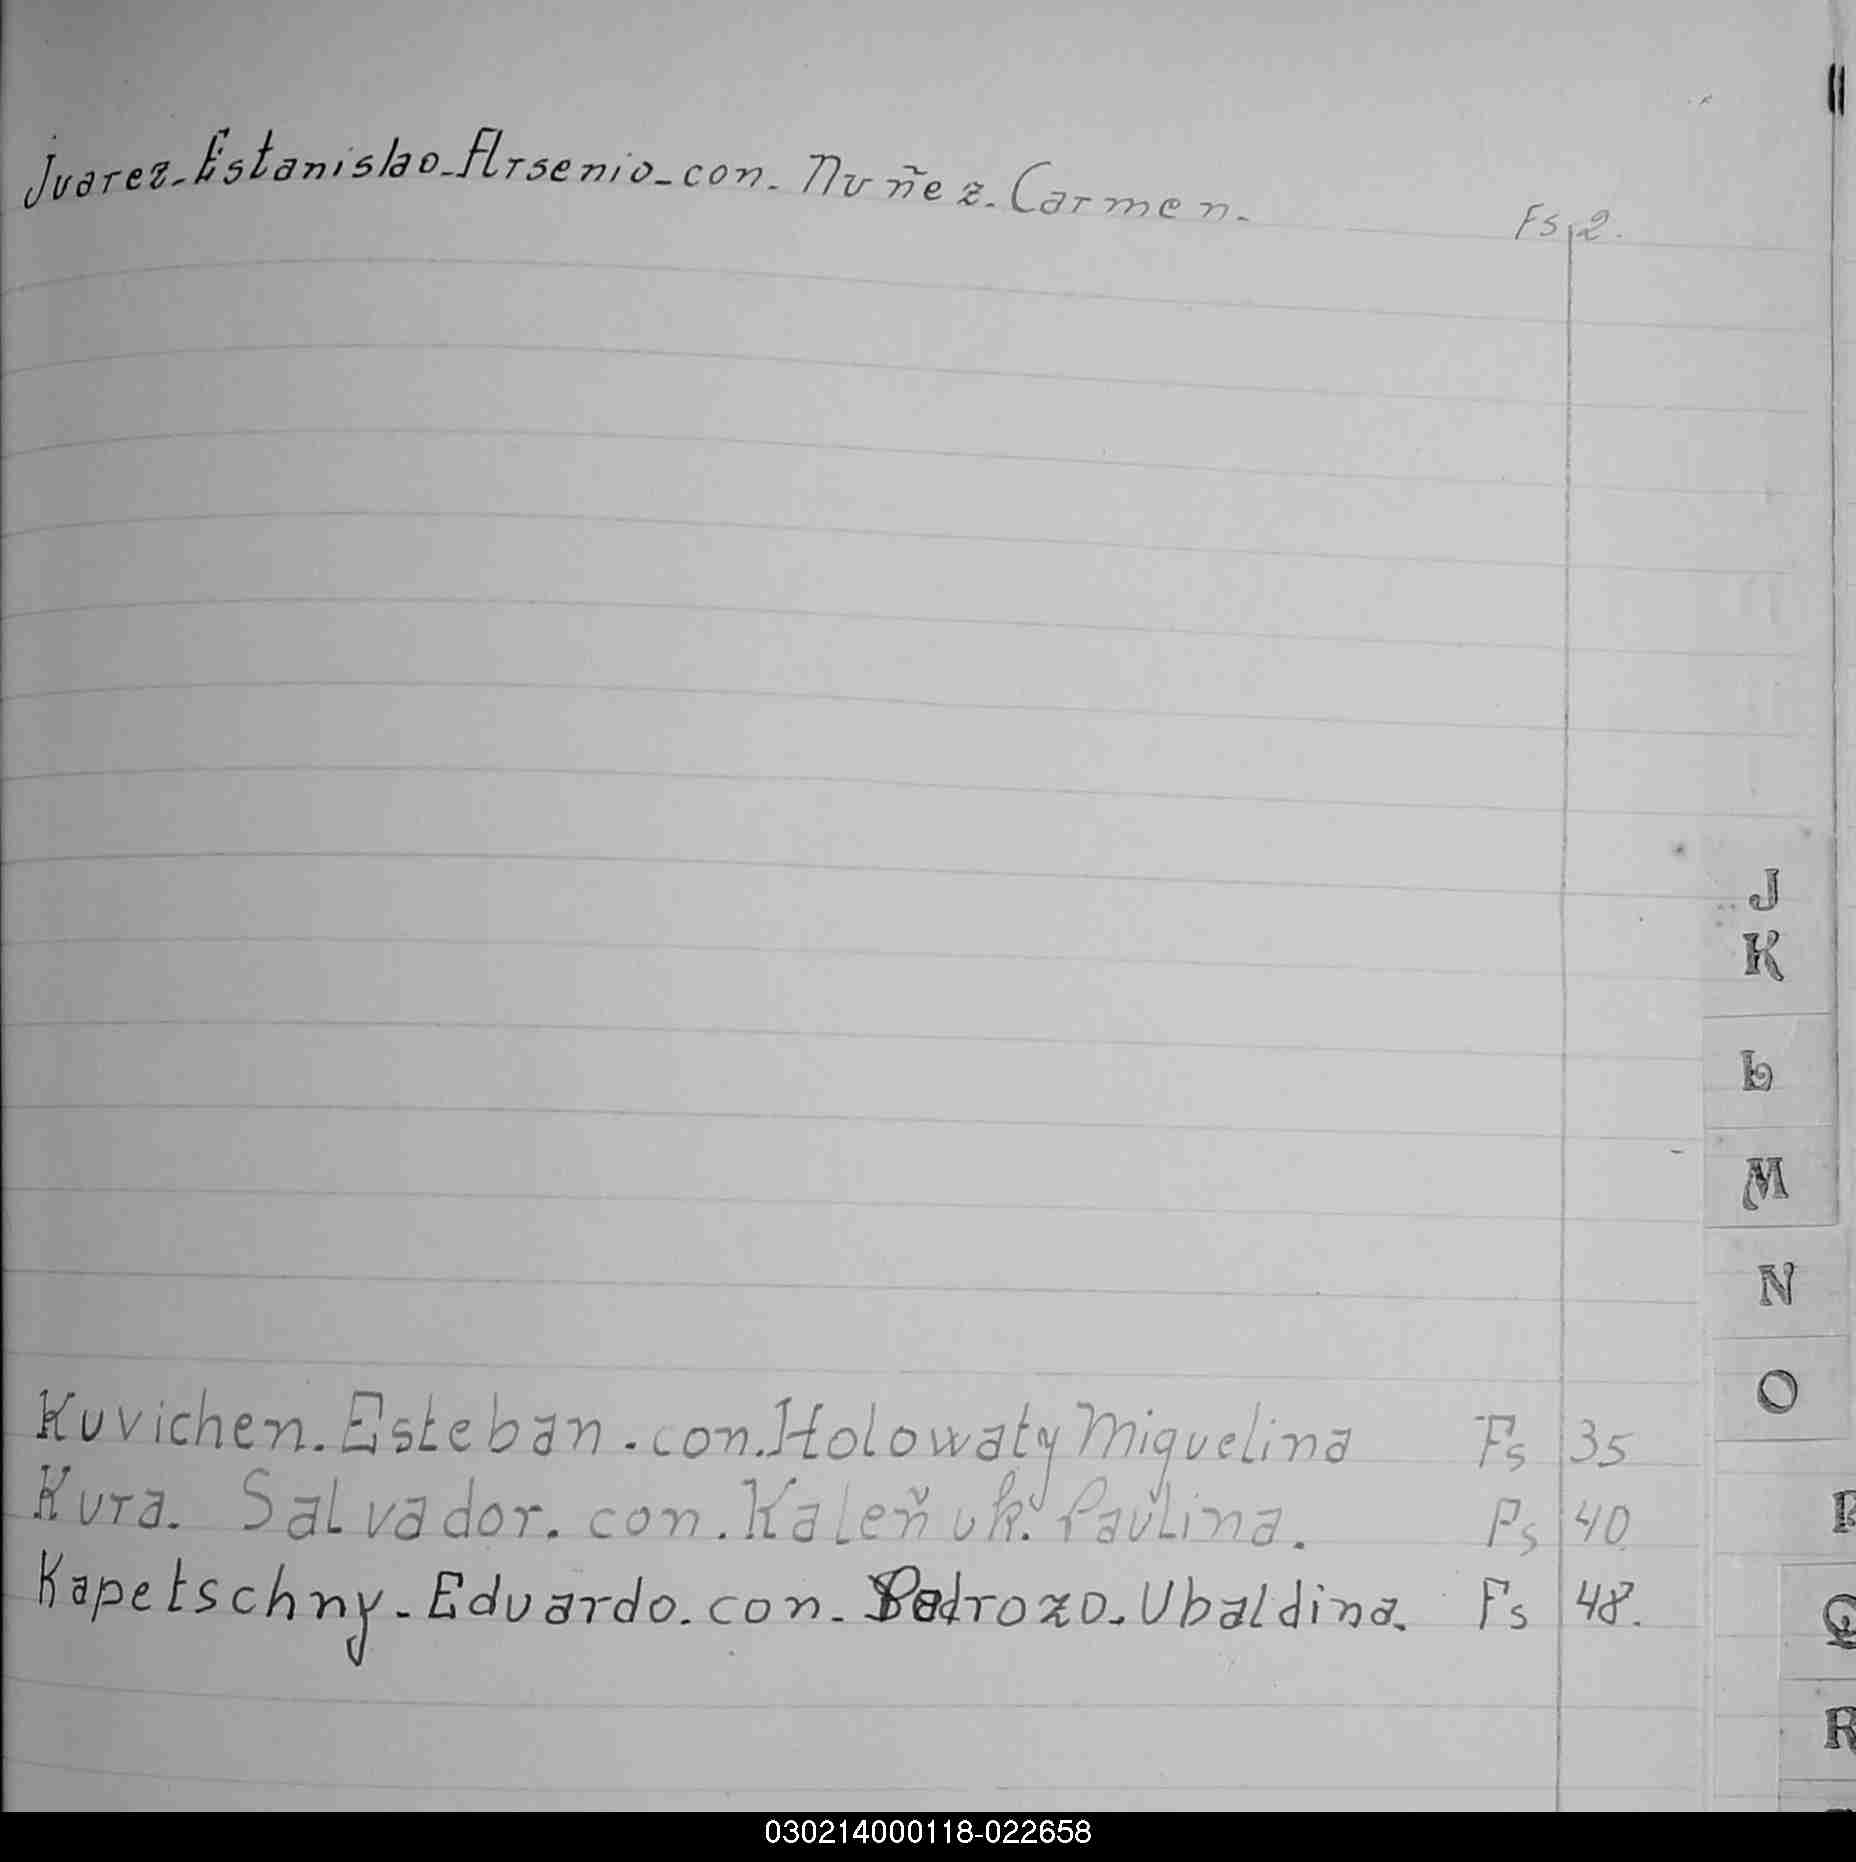 Juarez-Estanislao-Arsenio-con-Nuñez-Carmen- Fs 2.
J
K
L
M
N
O
Kuvichen. Esteban. con. Holowaty Miguelina Fs 35
Kura. Salvador. con. Kaleñuk. Paulina. Fs 40
P
Kapetschny- Eduardo. con- Pedrozo- Ubaldina. Fs 48.
Q
R
030214000118-022658